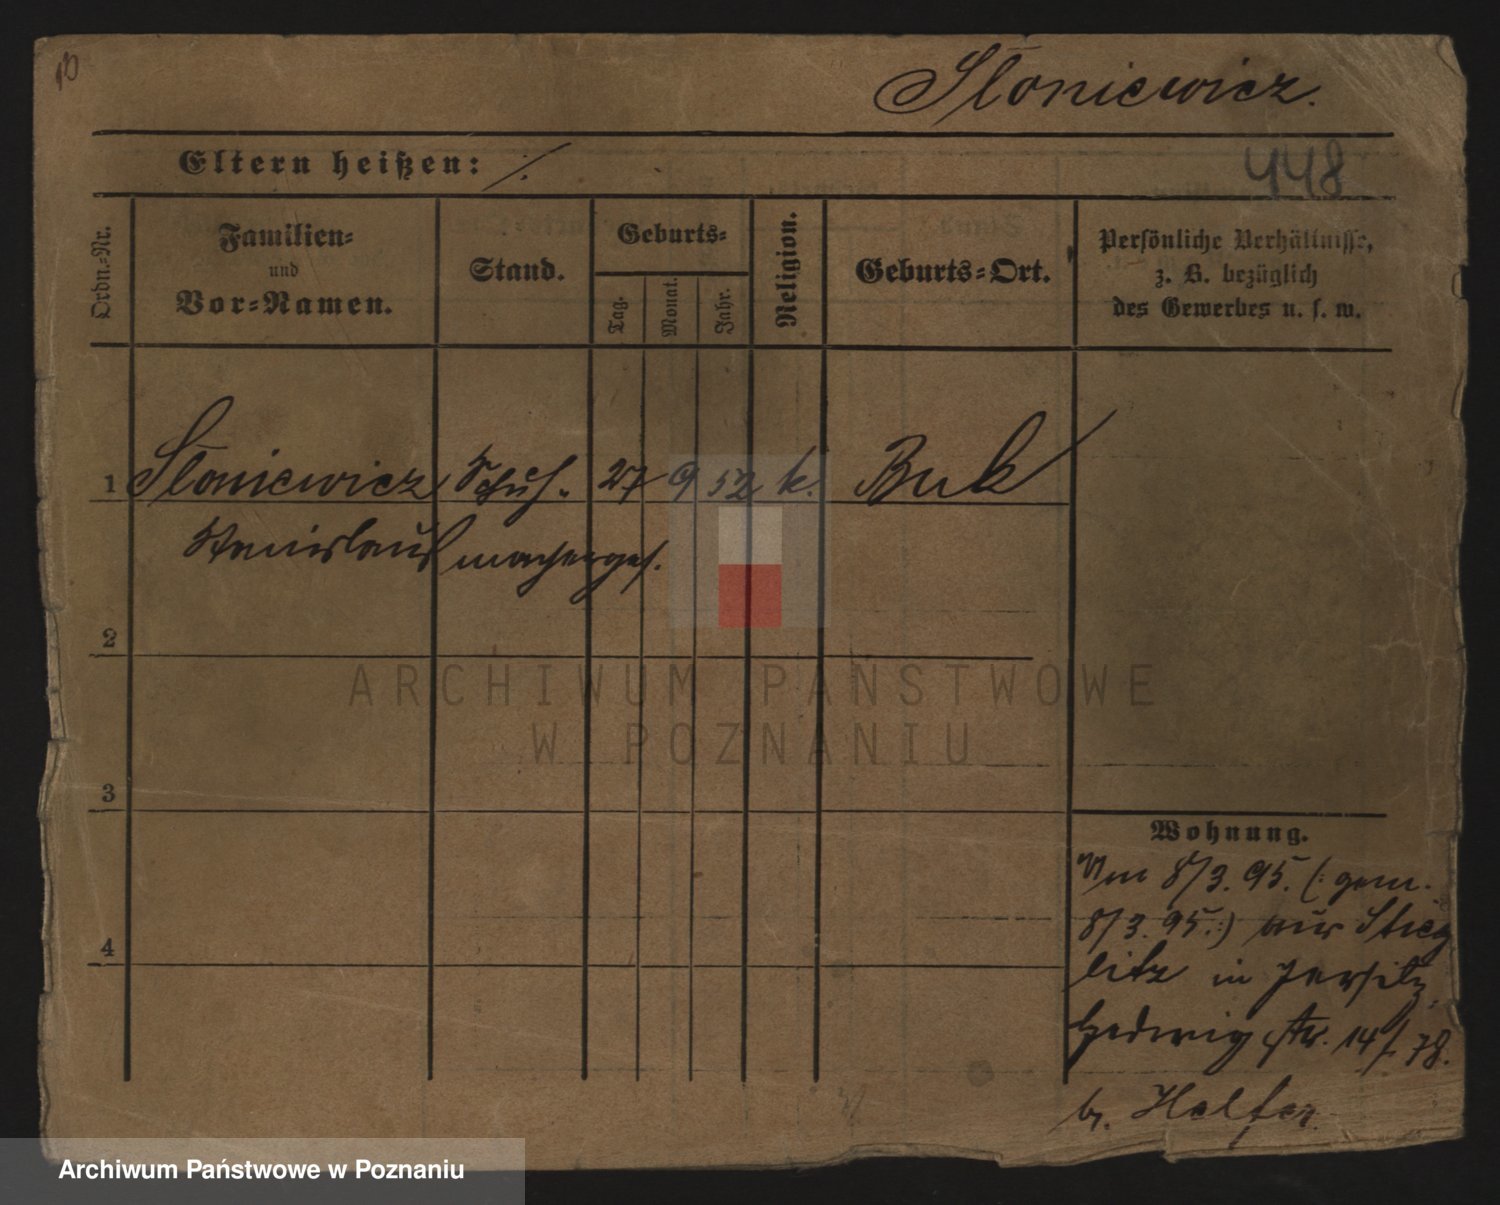 Słoniewicz.
Eltern heißen: ./.
448
Ordn.-Nr.
Familien-
und
Vor-Namen.
Stand.
Geburts-
Tag.
Monat.
Jahr.
Religion.
Geburts-Ort.
Persönliche Verhältnisse,
z. B. bezüglich
des Gewerbes u. s. w.
1 Słoniewicz Schuh- 27 9 52 k. Buk
Stanislaus macherges.
2
3
4
Wohnung.
Von 8/3. 95. (: gem.
8/3. 95. :) aus Stieg
litz in Jersitz,
Hedwig str. 14 f. 78.
b. Helfer
ARCHIWUM PAŃSTWOWE
W POZNANIU
Archiwum Państwowe w Poznaniu